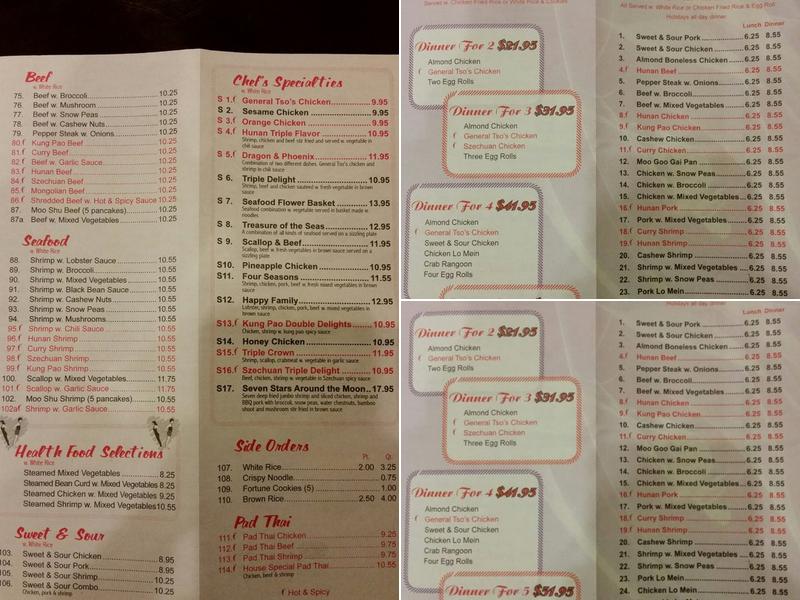 Beef
w. White Rice
75. Beef w. Broccoli 10.25
76. Beef w. Mushroom 10.25
77. Beef w. Snow Peas 10.25
78. Beef w. Cashew Nuts 10.25
79. Pepper Steak w. Onions 10.25
80. Kung Pao Beef 10.25
81. Curry Beef 10.25
82. Beef w. Garlic Sauce 10.25
83. Hunan Beef 10.25
84. Szechuan Beef 10.25
85. Mongolian Beef 10.25
86. Shredded Beef w. Hot & Spicy Sauce 10.25
87. Moo Shu Beef (5 pancakes) 10.25
87a Beef w. Mixed Vegetables 10.25
Seafood
w. White Rice
88. Shrimp w. Lobster Sauce 10.55
89. Shrimp w. Broccoli 10.55
90. Shrimp w. Mixed Vegetables 10.55
91. Shrimp w. Black Bean Sauce 10.55
92. Shrimp w. Cashew Nuts 10.55
93. Shrimp w. Snow Peas 10.55
94. Shrimp w. Mushrooms 10.55
95. Shrimp w. Chili Sauce 10.55
96. Hunan Shrimp 10.55
97. Curry Shrimp 10.55
98. Szechuan Shrimp 10.55
99. Kung Pao Shrimp 10.55
100. Scallop w. Mixed Vegetables 11.75
101. Scallop w. Garlic Sauce 11.75
102. Moo Shu Shrimp (5 pancakes) 10.55
102a Shrimp w. Garlic Sauce 10.55
Health Food Selections
w. White Rice
Steamed Mixed Vegetables 8.25
Steamed Bean Curd w. Mixed Vegetables 8.25
Steamed Chicken w. Mixed Vegetables 9.25
Steamed Shrimp w. Mixed Vegetables 10.55
Sweet & Sour
w. White Rice
103. Sweet & Sour Chicken 8.95
104. Sweet & Sour Pork 8.95
105. Sweet & Sour Shrimp 10.25
106. Sweet & Sour Combo 10.25
Chicken, pork & shrimp
Chef's Specialties
w. White Rice
S 1. General Tso's Chicken 9.95
S 2. Sesame Chicken 9.95
S 3. Orange Chicken 9.95
S 4. Hunan Triple Flavor 10.95
Shrimp, chicken and beef stir fried and served w. vegetable in chili sauce
S 5. Dragon & Phoenix 11.95
Combination of two different dishes. General Tso's chicken and shrimp in chili sauce
S 6. Triple Delight 10.95
Shrimp, beef and chicken sauteed w. fresh vegetable in brown sauce
S 7. Seafood Flower Basket 13.95
Seafood combination w. vegetable served in basket made w. noodles
S 8. Treasure of the Seas 12.95
A combination of all kinds of seafood served on a sizzling plate
S 9. Scallop & Beef 11.95
Scallop, beef w. fresh vegetables in brown sauce served on a sizzling plate
S10. Pineapple Chicken 10.95
S11. Four Seasons 11.55
Shrimp, chicken, pork, beef w. fresh mixed vegetable in brown sauce
S12. Happy Family 12.95
Lobster, shrimp, chicken, pork, beef w. mixed vegetables in brown sauce
S13. Kung Pao Double Delights 10.95
Chicken, shrimp w. kung pao spicy sauce
S14. Honey Chicken 10.95
S15. Triple Crown 11.95
Shrimp, scallop, crabmeat w. vegetable in garlic sauce
S16. Szechuan Triple Delight 10.95
Beef, chicken, shrimp w. vegetable in Szechuan spicy sauce
S17. Seven Stars Around the Moon 17.95
Seven deep fried jumbo shrimp and sliced chicken, shrimp and BBQ pork with broccoli, snow peas, water chestnuts, bamboo shoot and mushroom stir fried in brown sauce
Side Orders
Pt. Qt.
107. White Rice 2.00 3.25
108. Crispy Noodle 0.75
109. Fortune Cookies (5) 1.00
110. Brown Rice 2.50 4.00
Pad Thai
111. Pad Thai Chicken 9.25
112. Pad Thai Beef 9.75
113. Pad Thai Shrimp 9.75
114. House Special Pad Thai 10.55
Chicken, beef & shrimp
Hot & Spicy
Served w. Chicken Fried Rice or White Rice & Cookies
Dinner For 2 $21.95
Almond Chicken
General Tso's Chicken
Two Egg Rolls
Dinner For 3 $31.95
Almond Chicken
General Tso's Chicken
Szechuan Chicken
Three Egg Rolls
Dinner For 4 $41.95
Almond Chicken
General Tso's Chicken
Sweet & Sour Chicken
Chicken Lo Mein
Crab Rangoon
Four Egg Rolls
All Served w. White Rice or Chicken Fried Rice & Egg Roll
Holidays all day dinner
Lunch Dinner
1. Sweet & Sour Pork 6.25 8.55
2. Sweet & Sour Chicken 6.25 8.55
3. Almond Boneless Chicken 6.25 8.55
4. Hunan Beef 6.25 8.55
5. Pepper Steak w. Onions 6.25 8.55
6. Beef w. Broccoli 6.25 8.55
7. Beef w. Mixed Vegetables 6.25 8.55
8. Hunan Chicken 6.25 8.55
9. Kung Pao Chicken 6.25 8.55
10. Cashew Chicken 6.25 8.55
11. Curry Chicken 6.25 8.55
12. Moo Goo Gai Pan 6.25 8.55
13. Chicken w. Snow Peas 6.25 8.55
14. Chicken w. Broccoli 6.25 8.55
15. Chicken w. Mixed Vegetables 6.25 8.55
16. Hunan Pork 6.25 8.55
17. Pork w. Mixed Vegetables 6.25 8.55
18. Curry Shrimp 6.25 8.55
19. Hunan Shrimp 6.25 8.55
20. Cashew Shrimp 6.25 8.55
21. Shrimp w. Mixed Vegetables 6.25 8.55
22. Shrimp w. Snow Peas 6.25 8.55
23. Pork Lo Mein 6.25 8.55
Dinner For 2 $21.95
Almond Chicken
General Tso's Chicken
Two Egg Rolls
Dinner For 3 $31.95
Almond Chicken
General Tso's Chicken
Szechuan Chicken
Three Egg Rolls
Dinner For 4 $41.95
Almond Chicken
General Tso's Chicken
Sweet & Sour Chicken
Chicken Lo Mein
Crab Rangoon
Four Egg Rolls
Dinner For 5 $51.95
Holidays all day dinner
Lunch Dinner
1. Sweet & Sour Pork 6.25 8.55
2. Sweet & Sour Chicken 6.25 8.55
3. Almond Boneless Chicken 6.25 8.55
4. Hunan Beef 6.25 8.55
5. Pepper Steak w. Onions 6.25 8.55
6. Beef w. Broccoli 6.25 8.55
7. Beef w. Mixed Vegetables 6.25 8.55
8. Hunan Chicken 6.25 8.55
9. Kung Pao Chicken 6.25 8.55
10. Cashew Chicken 6.25 8.55
11. Curry Chicken 6.25 8.55
12. Moo Goo Gai Pan 6.25 8.55
13. Chicken w. Snow Peas 6.25 8.55
14. Chicken w. Broccoli 6.25 8.55
15. Chicken w. Mixed Vegetables 6.25 8.55
16. Hunan Pork 6.25 8.55
17. Pork w. Mixed Vegetables 6.25 8.55
18. Curry Shrimp 6.25 8.55
19. Hunan Shrimp 6.25 8.55
20. Cashew Shrimp 6.25 8.55
21. Shrimp w. Mixed Vegetables 6.25 8.55
22. Shrimp w. Snow Peas 6.25 8.55
23. Pork Lo Mein 6.25 8.55
24. Chicken Lo Mein 6.25 8.55